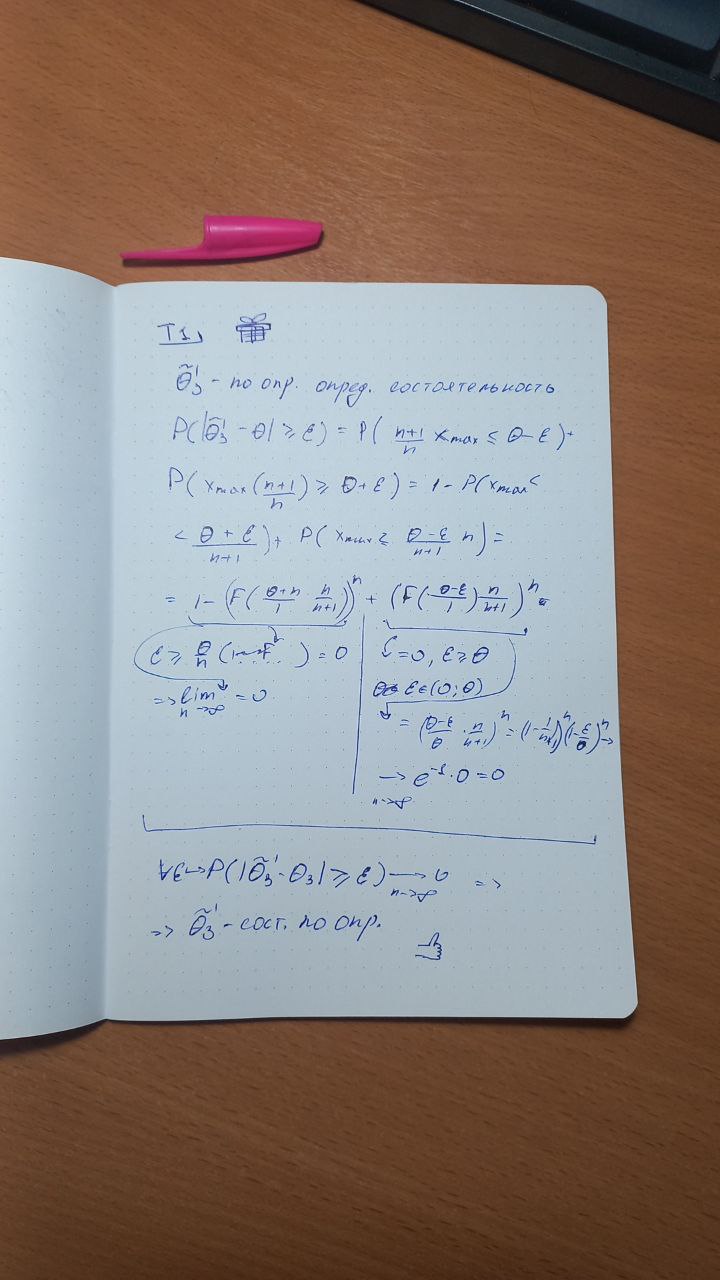 T1.
θ̃₃' - по опр. опред. состоятельность
P(|θ̃₃' - θ| ≥ ε) = P( n+1/n x_max ≤ θ - ε) +
P( x_max (n+1/n) ≥ θ + ε) = 1 - P(x_max <
< θ + ε / n+1 ) + P( x_max ≤ θ-ε/n+1 n) =
= 1 - (F(θ+n/1 n/n+1))ⁿ + (F(θ-ε/1) n/n+1)ⁿ =
ε ≥ θ/n (1 - F ......) = 0
=> lim n→∞ = 0
= 0, ε ≥ θ
ε ∈ (0; θ)
= (θ-ε/θ · n/n+1)ⁿ = (1 - 1/n+1)ⁿ (1 - ε/θ)ⁿ →
→ n→∞ e⁻¹ · 0 = 0
∀ε ↪ P(|θ̃₃' - θ₃| ≥ ε) → n→∞ 0 =>
=> θ̃₃' - сост. по опр.